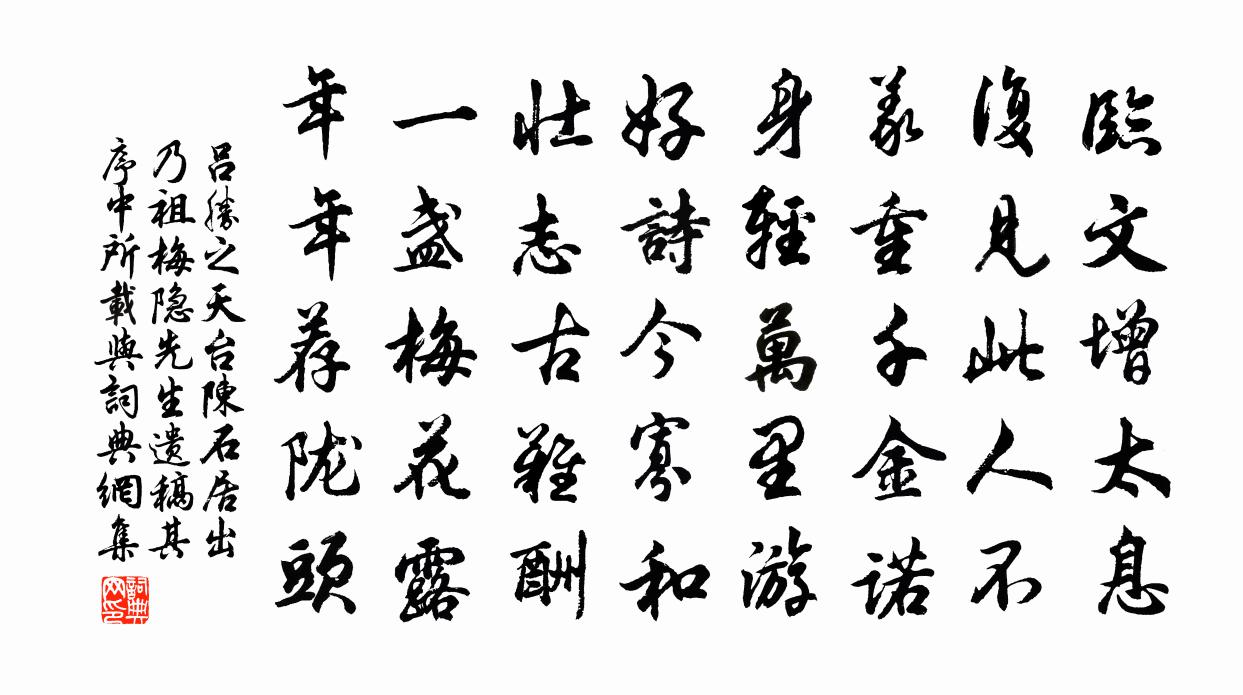 臨文增太息
復見此人不
義重千金諾
身輕萬里游
好詩今寡和
壯志古難酬
一盏梅花露
年年荐陇頭
呂勝之天台陳石居出
乃祖梅隐先生遗稿其
序中所載與詞典網集
詞典
网印